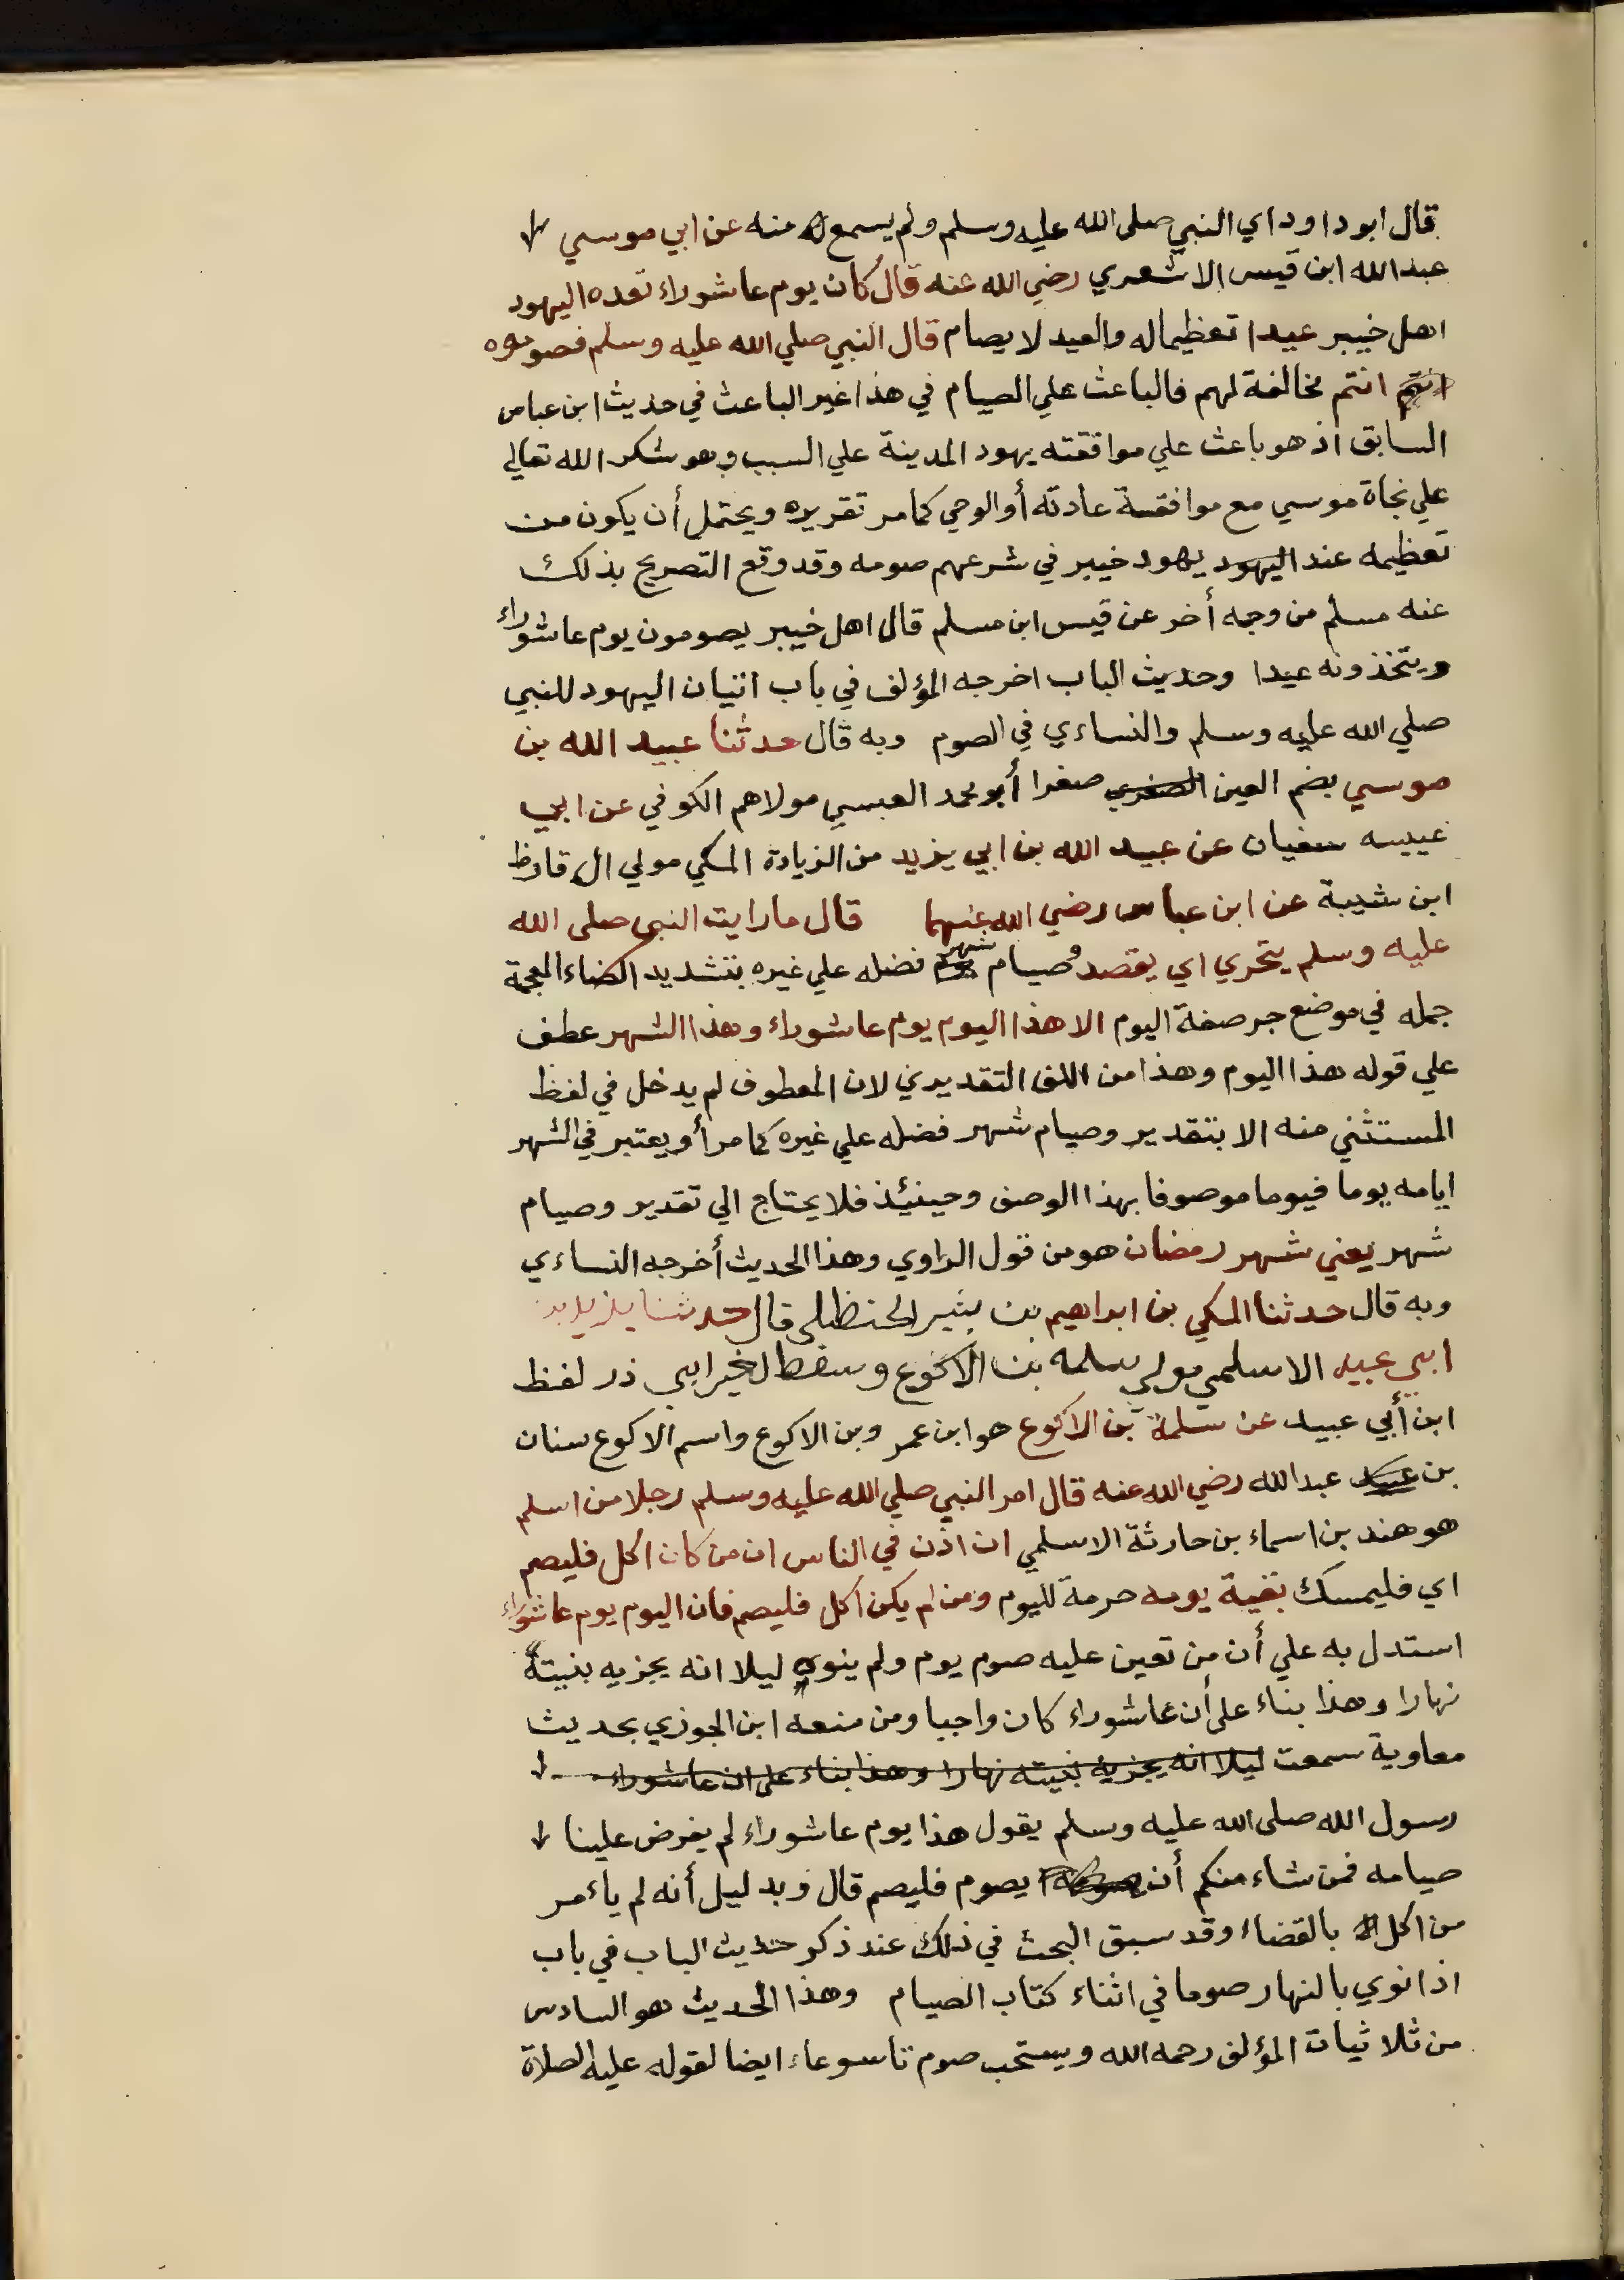 قال ابو داود اي النبي صلى الله عليه وسلم ولم يسمع منه عن ابي موسي
عبد الله ابن قيس الاشعري رضي الله عنه قال كان يوم عاشوراء تعده اليهود
اهل خيبر عيدا تعظيما له والعيد لا يصام قال النبي صلي الله عليه وسلم فصوموه
انتم انتم مخالفة لهم فالباعث علي الصيام في هذا غير الباعث في حديث ابن عباس
السابق اذ هو باعث علي موافقته يهود المدينة علي السبب وهو شكر الله تعالي
علي نجاة موسي مع موافقة عادته أو الوحي كما مر تقريره ويحتمل أن يكون من
تعظيمه عند اليهود يهود خيبر في شرعهم صومه وقد وقع التصريح بذلك
عنه مسلم من وجه أخر عن قيس ابن مسلم قال اهل خيبر يصومون يوم عاشوراء
ويتخذونه عيدا وحديث الباب اخرجه المؤلف في باب اتيان اليهود للنبي
صلي الله عليه وسلم والنساءي في الصوم وبه قال حدثنا عبيد الله بن
موسي بضم العين الصغرى صغرا أبو محمد العبسي مولاهم الكوفي عن ابي
عييسه سفيان عن عبيد الله بن ابي يزيد من الزيادة المكي مولي ال قارظ
ابن شيبة عن ابن عباس رضي الله عنهما قال ما رايت النبي صلى الله
عليه وسلم يتحري اي يقصد صيام شهر فضله علي غيره بتشديد الضاء المعجمة
جمله في موضع جر صفة اليوم الا هذا اليوم يوم عاشوراء وهذا الشهر عطف
علي قوله هذا اليوم وهذا من اللف التقديري لان المعطوف لم يدخل في لفظ
المستثني منه الا بتقدير وصيام شهر فضله علي غيره كما مر أو يعتبر في الشهر
ايامه يوما فيوما موصوفا بهذا الوصف وحينئذ فلا يحتاج الي تقدير وصيام
شهر يعني شهر رمضان هو من قول الراوي وهذا الحديث أخرجه النساءي
وبه قال حدثنا المكي بن ابراهيم بن بشير الحنظلي قال حدثنا يزيد بن
ابي عبيد الاسلمي مولي سلمه بن الاكوع وسقط لغير ابي ذر لفظ
ابن أبي عبيد عن سلمة بن الاكوع هو ابن عمر وبن الاكوع واسم الاكوع سنان
بن عبد عبد الله رضي الله عنه قال امر النبي صلي الله عليه وسلم رجلا من اسلم
هو هند بن اسماء بن حارثة الاسلمي ان اذن في الناس ان من كان اكل فليصم
اي فليمسك بقية يومه حرمة لليوم ومن لم يكن اكل فليصم فان اليوم يوم عاشوراء
استدل به علي أن من تعين عليه صوم يوم ولم ينوي ليلا انه يجزيه بنيته
نهارا وهذا بناء على أن عاشوراء كان واجبا ومن منعه ابن الجوزي بحديث
معاوية سمعت ليلا انه يجزيه بنيته نهارا وهذا بناء على ان عاشوراء
رسول الله صلى الله عليه وسلم يقول هذا يوم عاشوراء لم يفرض علينا
صيامه فمن شاء منكم أن يصوم فليصم قال وبدليل أنه لم ياءمر
من اكل بالقضاء وقد سبق البحث في ذلك عند ذكر حديث الباب في باب
اذا نوي بالنهار صوما في اثناء كتاب الصيام وهذا الحديث هو السادس
من ثلاثيات المؤلف رحمه الله ويستحب صوم تاسوعاء ايضا لقوله عليه الصلاة